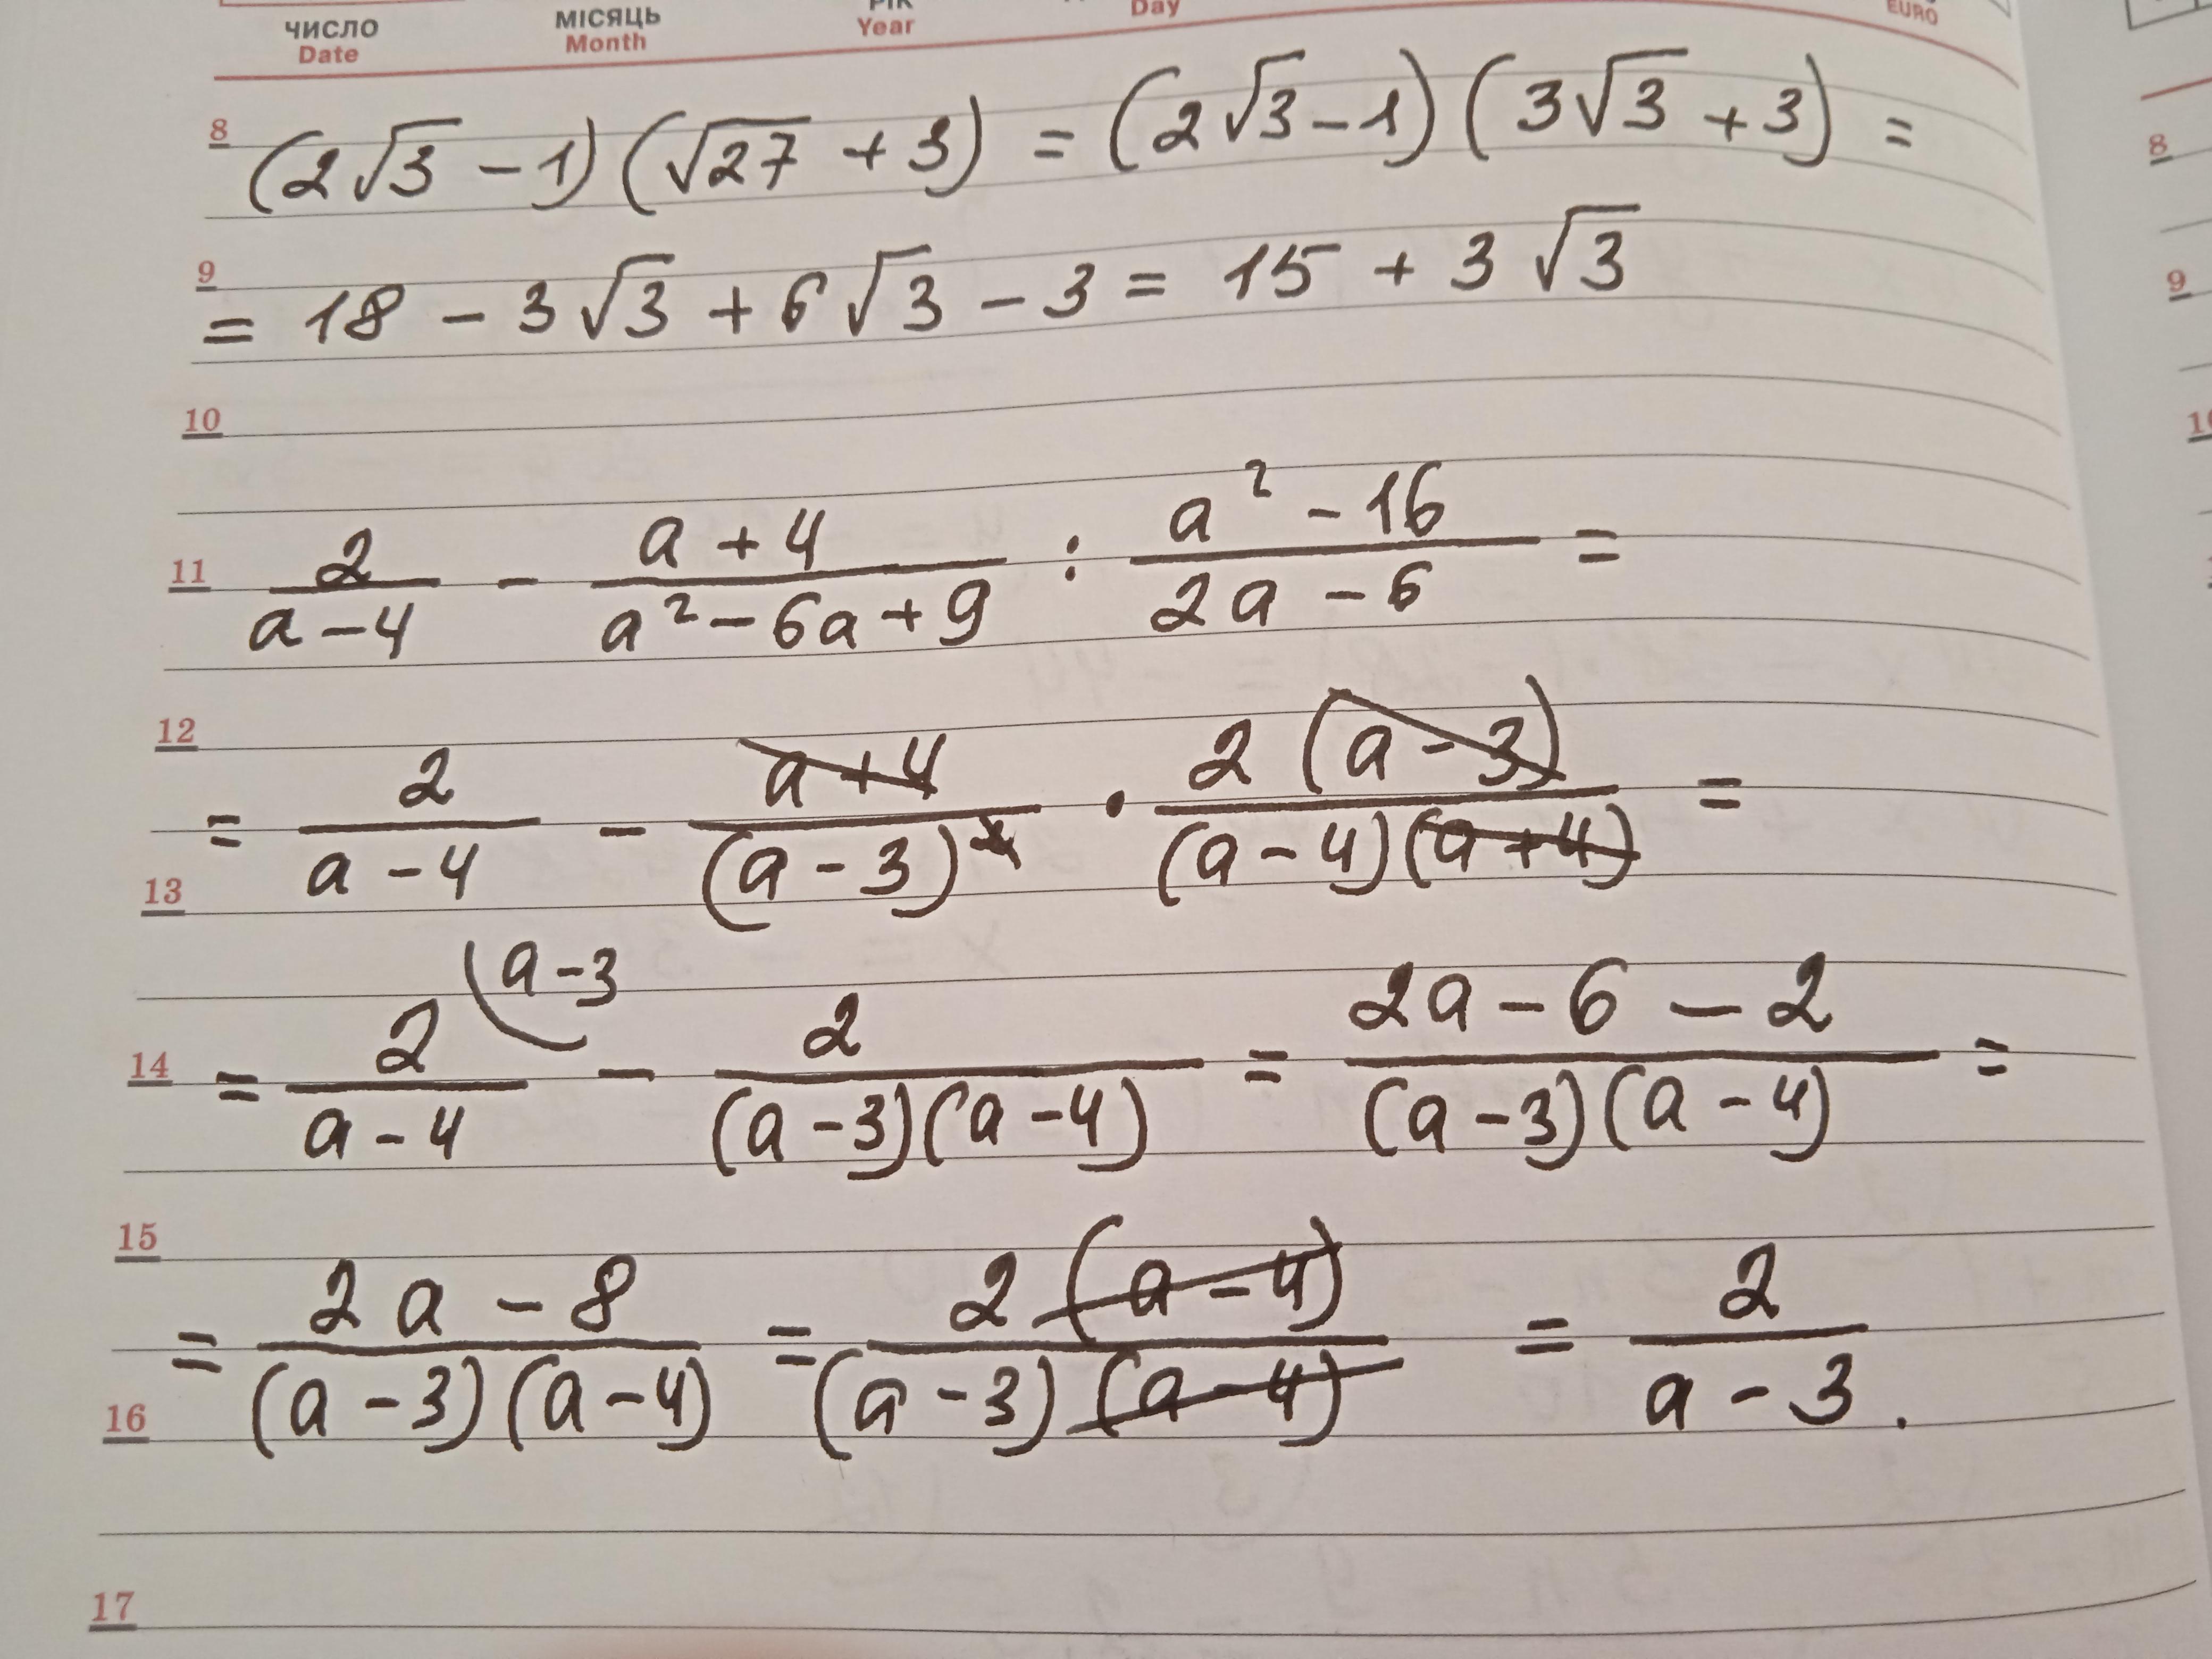 ЧИСЛО МІСЯЦЬ РІК
Date Month Year Day EURO
8 (2√3 - 1)(√27 + 3) = (2√3 - 1)(3√3 + 3) = 8
9 = 18 - 3√3 + 6√3 - 3 = 15 + 3√3 9
10
11 2/(a-4) - (a+4)/(a²-6a+9) : (a²-16)/(2a-6) =
12 = 2/(a-4) - (a+4)/(a-3)² · 2(a-3)/((a-4)(a+4)) =
13
(a-3
14 = 2/(a-4) - 2/((a-3)(a-4)) = (2a-6-2)/((a-3)(a-4)) =
15
= (2a-8)/((a-3)(a-4)) = 2(a-4)/((a-3)(a-4)) = 2/(a-3).
16
17